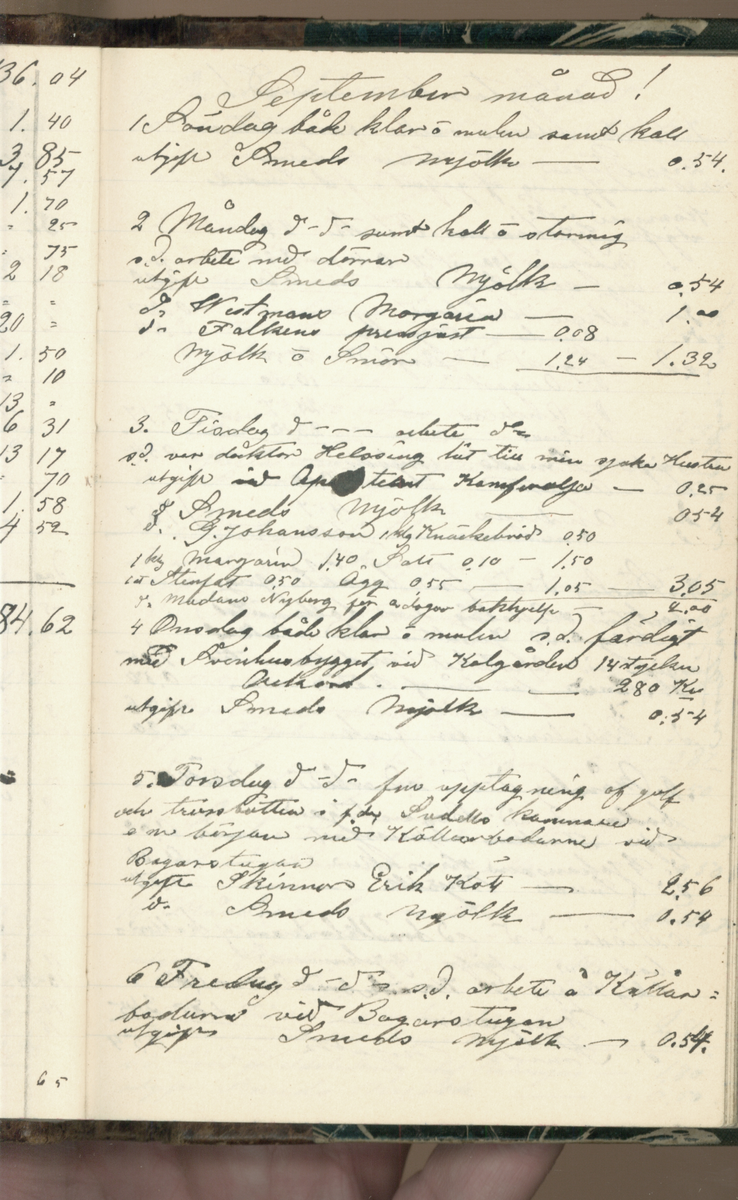 36.04
1. 40
3 85
7. 57
1. 70
" 25
" 75
2 18
" "
20 "
1. 50
" 10
13 "
6 31
13 17
" 70
1. 58
4 52
84.62
65
September månad!
1 Söndag både klar o mulen samt kall
utgift Smeds Mjölk — 0.54.
2 Måndag d-d- samt kall o stormig
s.d. arbete med dörrar
utgift Smeds Mjölk — 0.54
d- Westmans Margarin — 1.00
d- Falkens pressjäst — 0.08
Mjölk o Smör — 1.24 — 1.32
3. Tisdag d - - - arbete d-
s.d. var doktor Helsing hit till min sjuka Hustru
utgift vid Apoteket Kamferolja — 0.25
d Smeds Mjölk 0.54
d. G. Johansson 1 kg Knäckebröd 0.50
1 kg Margarin 1.40. Salt 0.10 — 1.50
0.50 Ägg 0.55 — 1.05 — 3.05
d- Madans Nyberg för dagar bakhjelp — 2.00
4 Onsdag både klar o mulen s.d. färdigt
med bygget vid Kolgården 14 stycken
Ackord. — — 280 Kr
utgift Smeds Mjölk — 0.54
5. Torsdag d-d- fm upptagning af golf
och trossbotten i f.d. kammare
e m början med Källarbodarne vid
Bagarstugan
utgift Skinnars Erik Kött — 2.56
d- Smeds Mjölk — 0.54
6 Fredag d-d- s.d. arbete å Källar=
bodarna vid Bagarstugan
utgift Smeds Mjölk — 0.54.